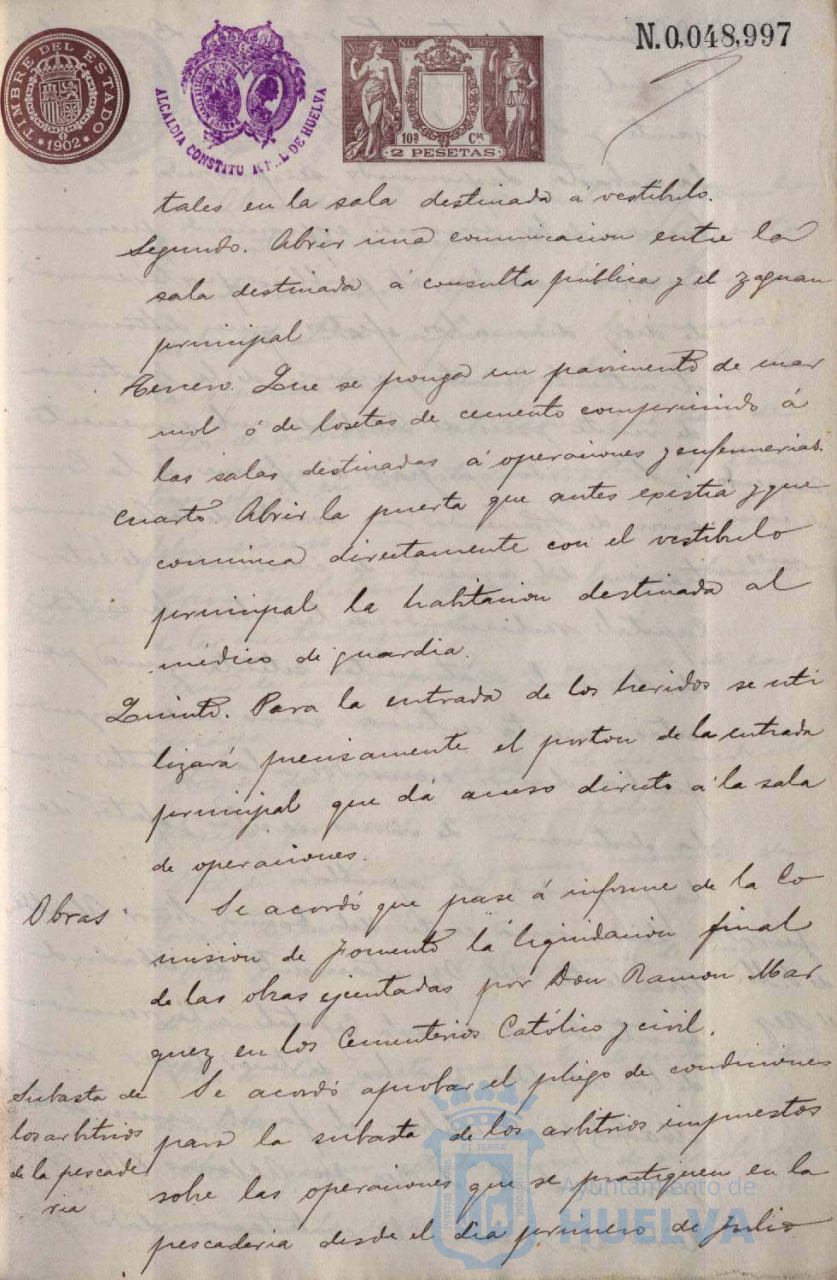 TIMBRE DEL ESTADO
*1902*
ALCALDIA CONSTITU N.AL DE HUELVA
AÑO 1902
10ª Cse
2 PESETAS
N.0,048,997
tales en la sala destinada á vestíbulo.
Segundo. Abrir una comunicacion entre la
sala destinada á consulta pública y el zaguan
principal
Tercero. Que se ponga un pavimento de mar
mol ó de losetas de cemento comprimido á
las salas destinadas á operaciones y enfermerias.
Cuarto. Abrir la puerta que antes existia y que
comunica directamente con el vestíbulo
principal la habitacion destinada al
médico de guardia.
Quinto. Para la entrada de los heridos se uti
lizará precisamente el porton de la entrada
principal que dá acceso directo á la sala
de operaciones.
Obras
Se acordó que pase á informe de la Co
mision de Fomento la liquidacion final
de las obras ejecutadas por Don Ramon Mar
quez en los Cementerios Católico y civil.
Subasta de
los arbitrios
de la pescade
ria
Se acordó aprobar el pliego de condiciones
para la subasta de los arbitrios impuestos
sobre las operaciones que se practiquen en la
pescaderia desde el dia primero de Julio
Ayuntamiento de
HUELVA